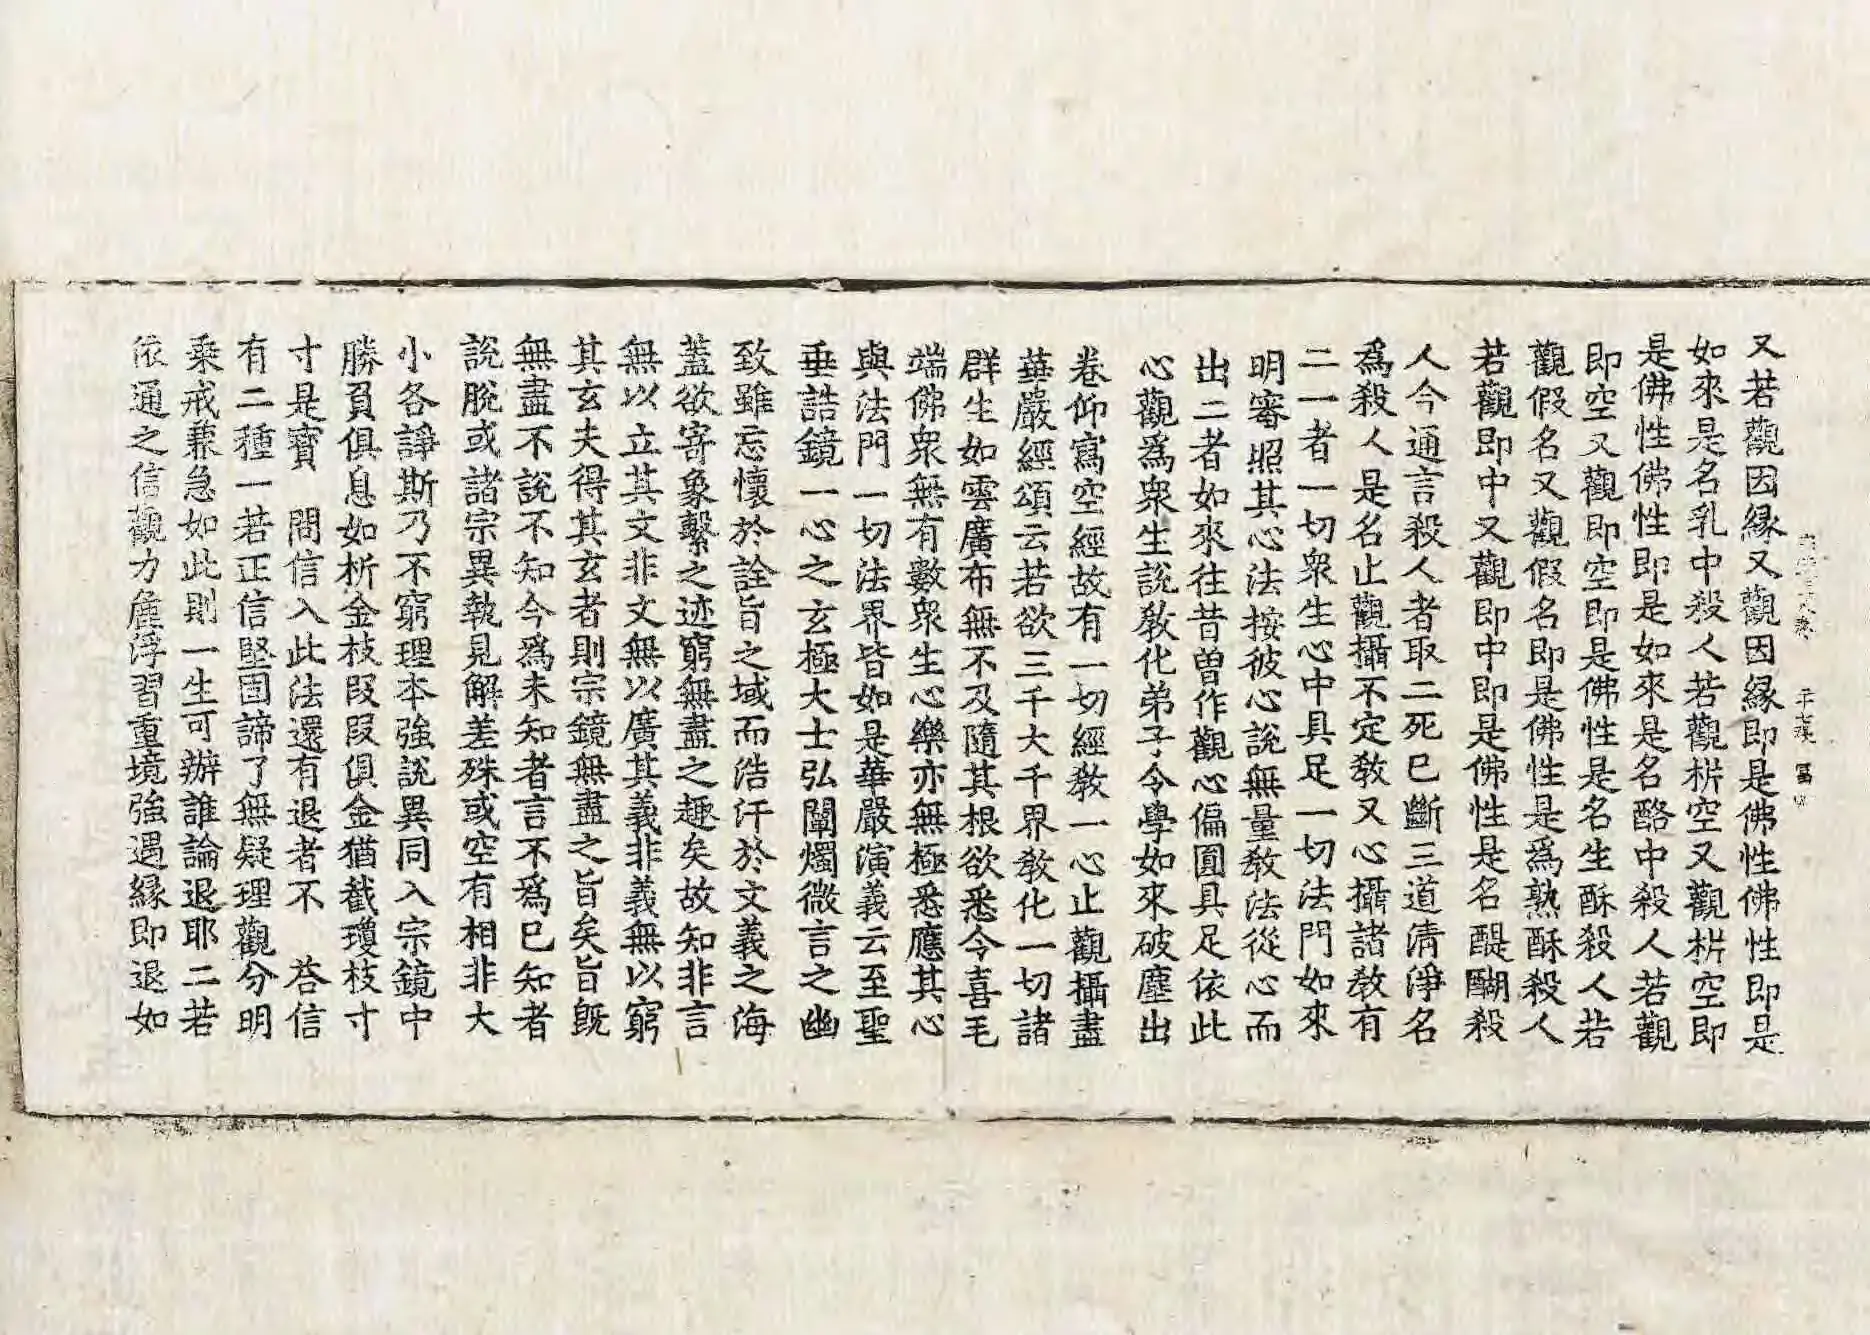 又若觀因縁又觀因縁即是佛性佛性即是
如來是名乳中殺人若觀析空又觀析空即
是佛性佛性即是如來是名酪中殺人若觀
即空又觀即空即是佛性是名生酥殺人若
觀假名又觀假名即是佛性是爲熟酥殺人
若觀即中又觀即中即是佛性是名醍醐殺
人今通言殺人者取二死已斷三道清淨名
爲殺人是名止觀攝不定教又心攝諸教有
二一者一切衆生心中具足一切法門如來
明審照其心法按彼心說無量教法從心而
出二者如來往昔曽作觀心偏圓具足依此
心觀爲衆生說教化弟子令學如來破塵出
卷仰寫空經故有一切經教一心止觀攝盡
華嚴經頌云若欲三千大千界教化一切諸
群生如雲廣布無不及隨其根欲悉令喜毛
端佛衆無有數衆生心樂亦無極悉應其心
與法門一切法界皆如是華嚴演義云至聖
垂誥鏡一心之玄極大士弘闡燭微言之幽
致雖忘懷於詮旨之域而浩汗於文義之海
蓋欲寄象繫之迹窮無盡之趣矣故知非言
無以立其文非文無以廣其義非義無以窮
其玄夫得其玄者則宗鏡無盡之旨矣旨旣
無盡不說不知今爲未知者言不爲已知者
說脫或諸宗異執見解差殊或空有相非大
小各諍斯乃不窮理本強說異同入宗鏡中
勝負俱息如析金枝段段俱金猶截瓊枝寸
寸是寳 問信入此法還有退者不 荅信
有二種一若正信堅固諦了無疑理觀分明
乗戒兼急如此則一生可辦誰論退耶二若
依通之信觀力麁浮習重境強遇縁即退如